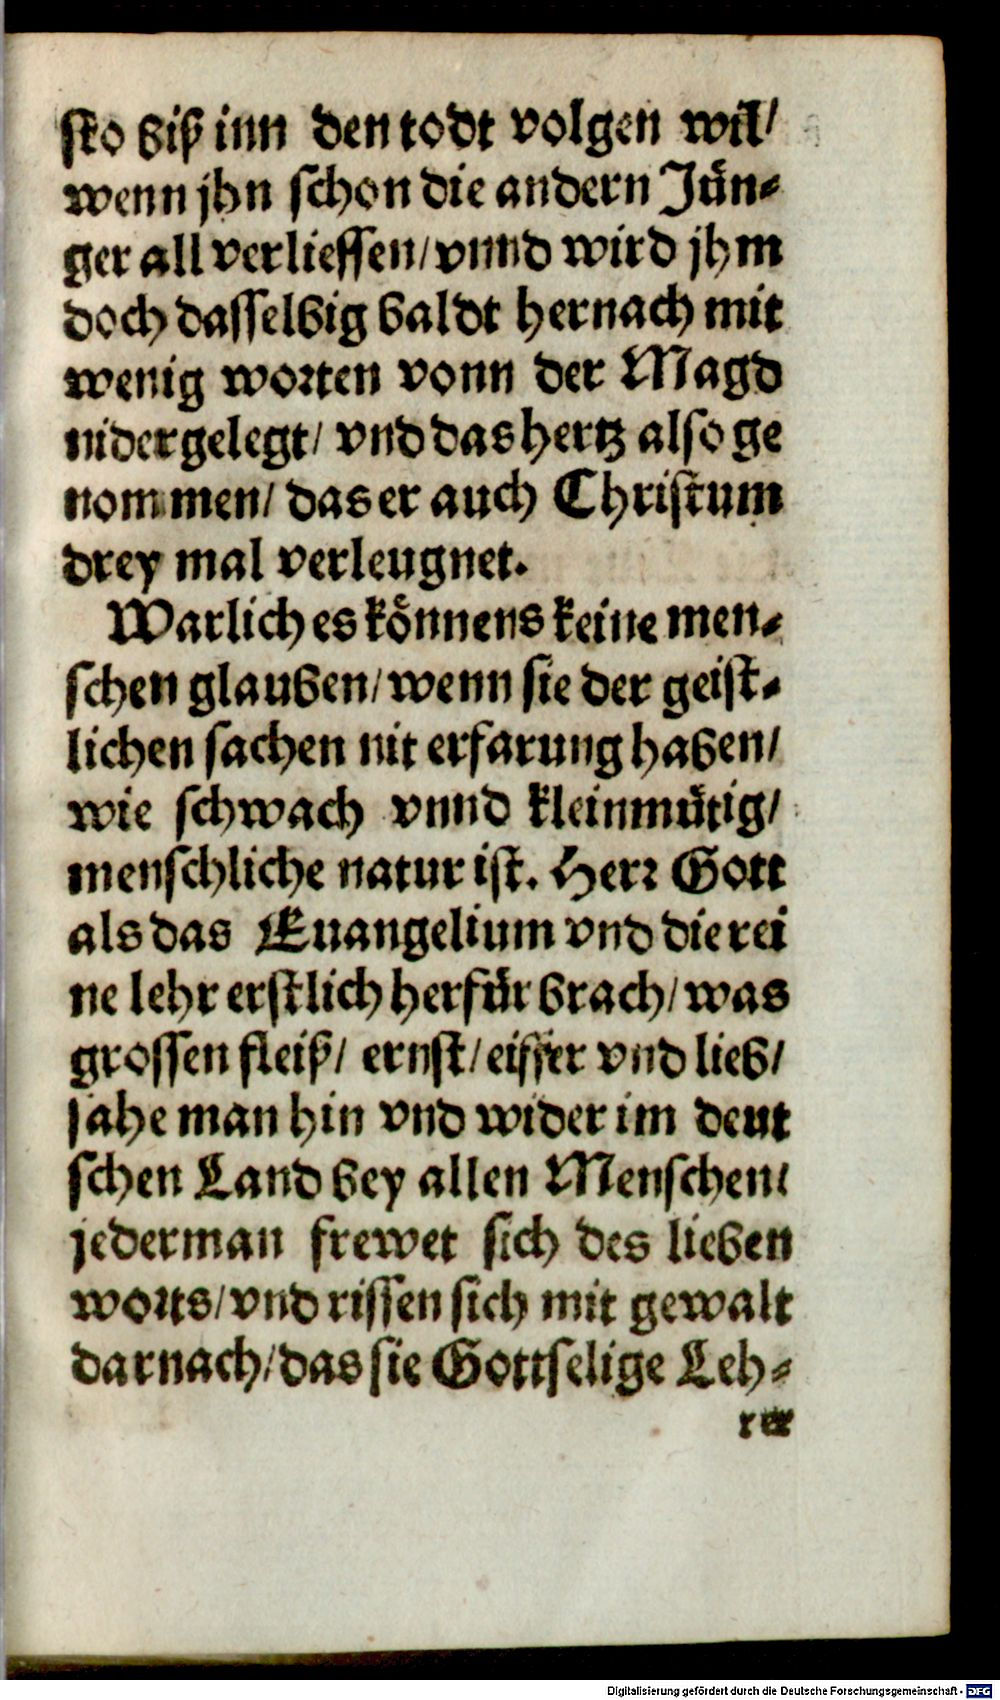 sto biß inn den todt volgen wil/
wenn jhn schon die andern Jün-
ger all verliessen/vnnd wird jhm
doch dasselbig baldt hernach mit
wenig worten vonn der Magd
nidergelegt/ vnd das hertz also ge
nommen/ das er auch Christum
drey mal verleugnet.
Warlich es könnens keine men-
schen glauben/wenn sie der geist-
lichen sachen nit erfarung haben/
wie schwach vnnd kleinmütig/
menschliche natur ist. Herr Gott
als das Euangelium vnd die rei
ne lehr erstlich herfür brach/was
grossen fleiß/ ernst/eiffer vnd lieb/
sahe man hin vnd wider im deut
schen Land bey allen Menschen/
jederman frewet sich des lieben
worts/vnd rissen sich mit gewalt
darnach/das sie Gottselige Leh-
rer
Digitalisierung gefördert durch die Deutsche Forschungsgemeinschaft - DFG